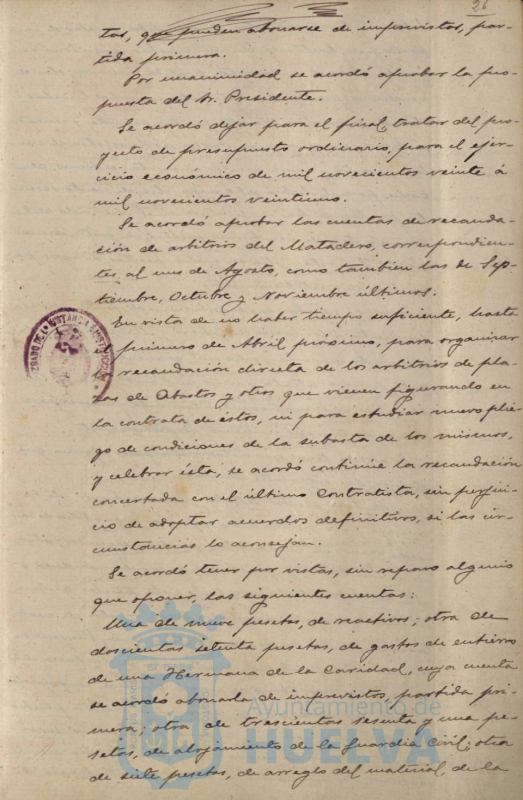 26
tas, que pueden abonarse de imprevistos, par-
tida primera.
Por unanimidad se acordó aprobar la pro-
puesta del Sr. Presidente.
Se acordó dejar para el final, tratar del pro-
yecto de presupuesto ordinario, para el ejer-
cicio económico de mil novecientos veinte á
mil novecientos veintiuno.
Se acordó aprobar las cuentas de recauda-
ción de arbitrios del Matadero, correspondien-
tes al mes de Agosto, como tambien las de Sep-
tiembre, Octubre y Noviembre últimos.
En vista de no haber tiempo suficiente, hasta
primero de Abril próximo, para organizar
la recaudación directa de los arbitrios de pla-
zas de Abastos y otros que vienen figurando en
la contrata de éstos, ni para estudiar nuevo plie-
go de condiciones de la subasta de los mismos,
y celebrar ésta, se acordó continúe la recaudación
concertada con el último Contratista, sin perjui-
cio de adoptar acuerdos definitivos, si las cir-
cunstancias lo aconsejan.
Se acordó tener por vistas, sin reparo alguno
que oponer, las siguientes cuentas:
Una de nueve pesetas, de reactivos; otra de
doscientas setenta pesetas, de gastos de entierro
de una Hermana de la Caridad, cuya cuenta
se acordó abonarla de imprevistos, partida pri-
mera; otra de trescientas sesenta y una pe-
setas, de alojamiento de la Guardia Civil; otra
de siete pesetas, de arreglo del material de la
Ayuntamiento de
HUELVA